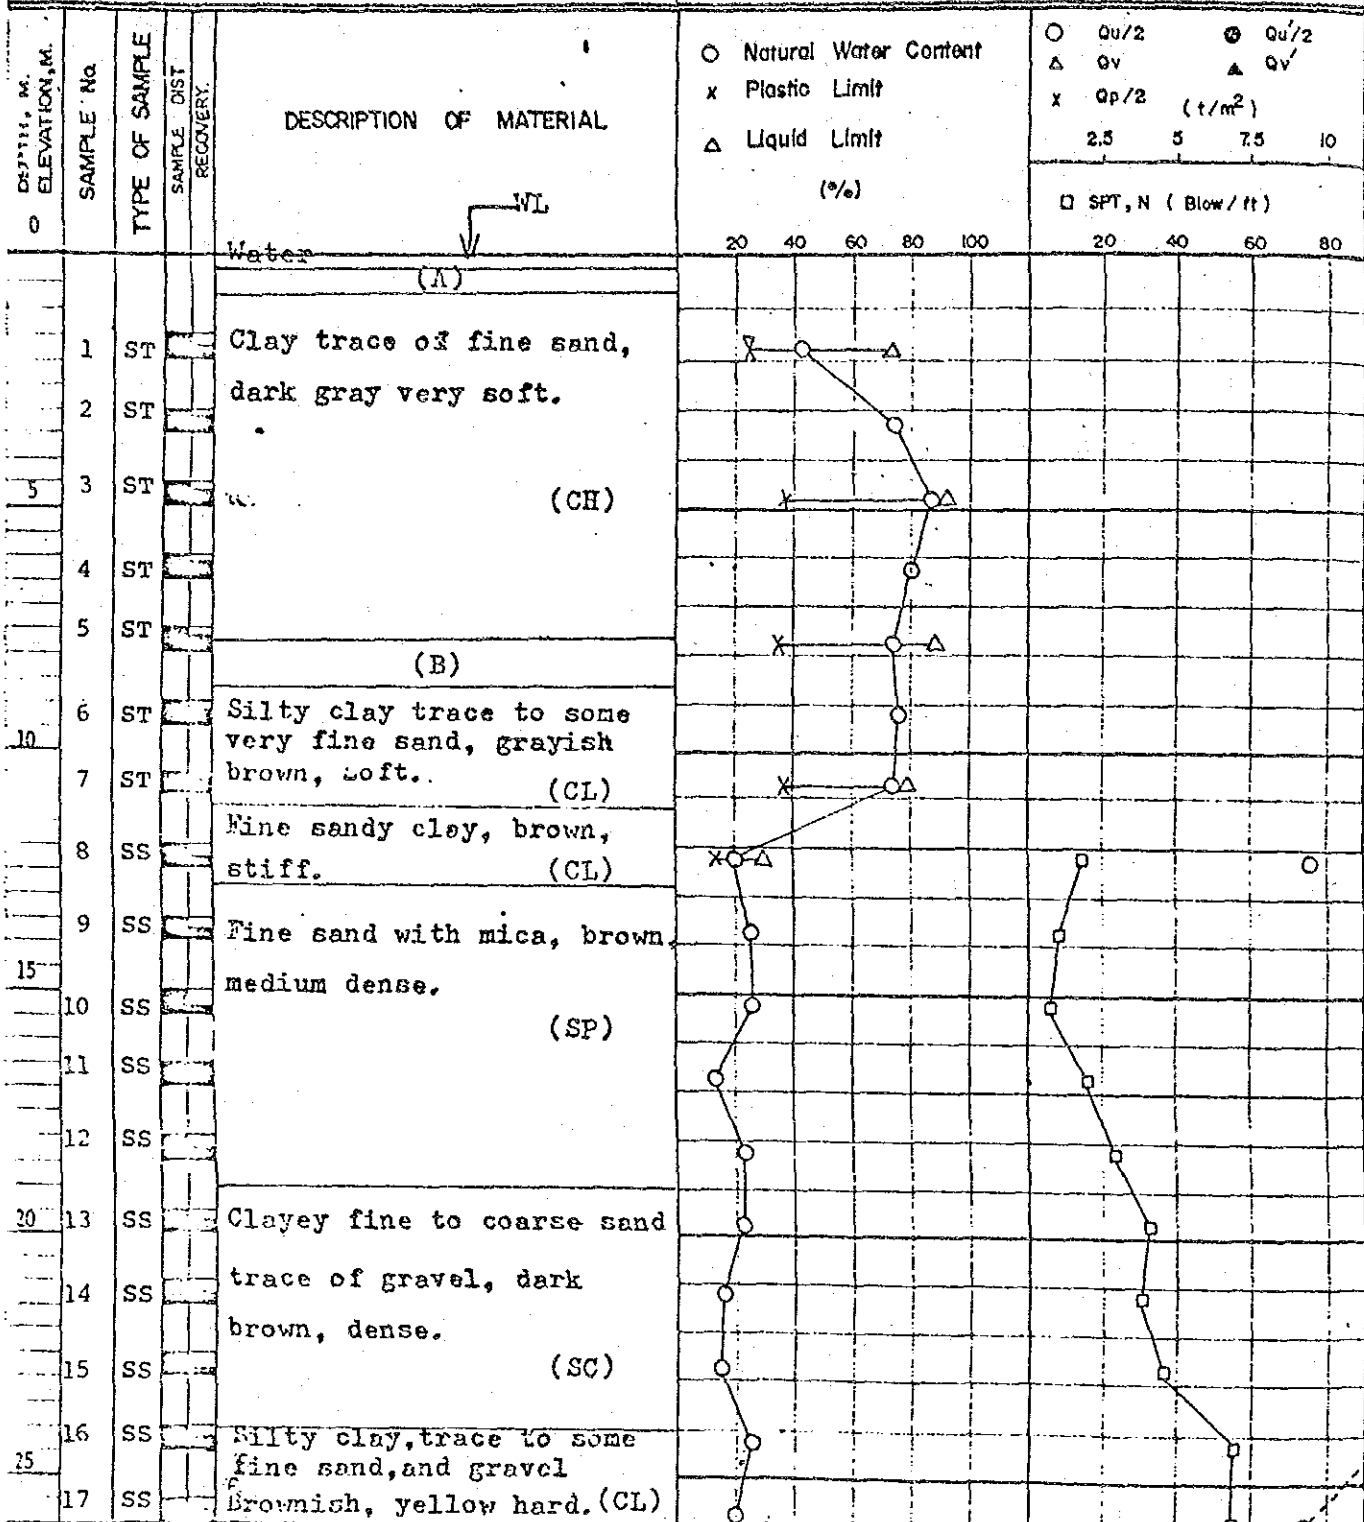 DEPTH, M.
ELEVATION, M.
0
SAMPLE No.
TYPE OF SAMPLE
SAMPLE DIST
RECOVERY.
DESCRIPTION OF MATERIAL
WL
Water
○ Natural Water Content
x Plastic Limit
△ Liquid Limit
(%)
20 40 60 80 100
○ Qu/2 Qu'/2
△ Qv ▲ Qv'
x Qp/2 (t/m²)
2.5 5 7.5 10
□ SPT, N ( Blow / ft )
20 60 80
(A)
1 ST Clay trace of fine sand,
2 ST dark gray very soft.
5 3 ST (CH)
4 ST
5 ST
(B)
6 ST Silty clay trace to some
10 very fine sand, grayish
7 ST brown, soft. (CL)
8 SS Fine sandy clay, brown,
stiff. (CL)
9 SS Fine sand with mica, brown,
15 medium dense.
10 SS (SP)
11 SS
12 SS
20 13 SS Clayey fine to coarse sand
14 SS trace of gravel, dark
brown, dense.
15 SS (SC)
16 SS Silty clay, trace to some
25 fine sand, and gravel
17 SS Brownish, yellow hard. (CL)